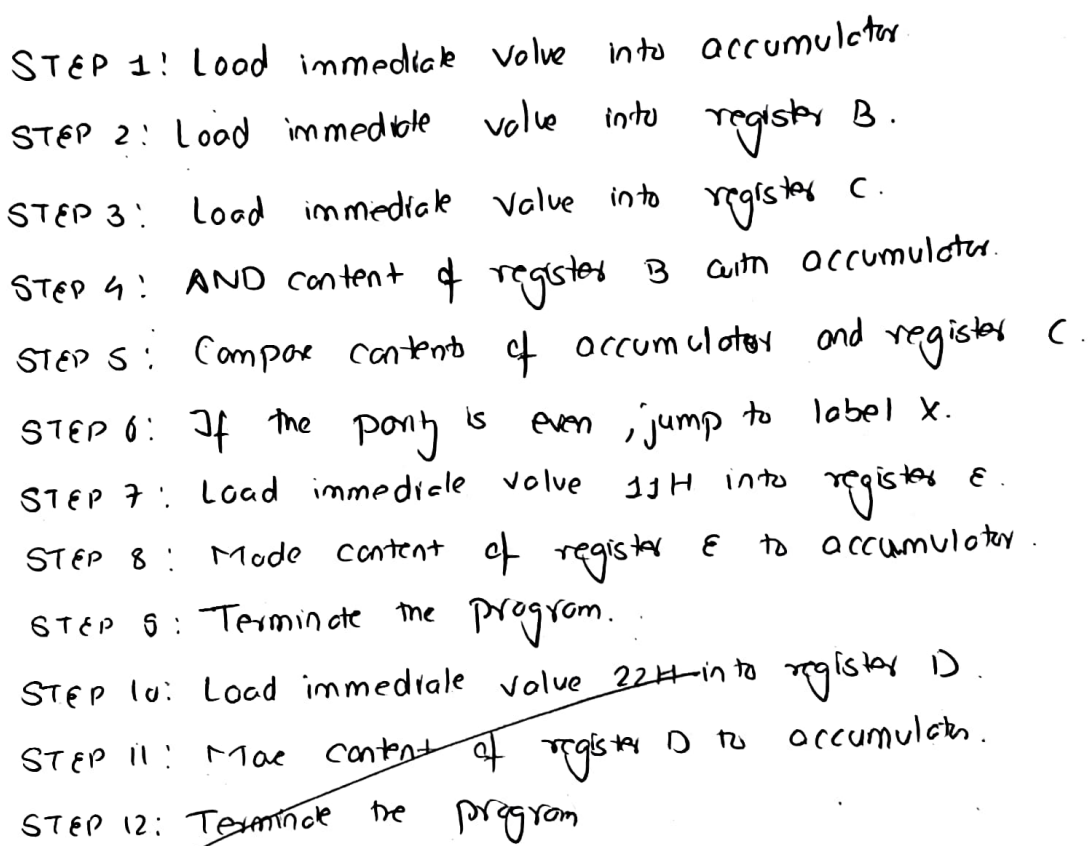 STEP 1: Load immediate value into accumulator
STEP 2: Load immediate value into register B.
STEP 3: Load immediate value into register C.
STEP 4: AND content of register B with accumulator.
STEP 5: Compare contents of accumulator and register C.
STEP 6: If the parity is even, jump to label X.
STEP 7: Load immediate value 11H into register E.
STEP 8: Move content of register E to accumulator.
STEP 9: Terminate the program.
STEP 10: Load immediate value 22H into register D.
STEP 11: Move content of register D to accumulator.
STEP 12: Terminate the program